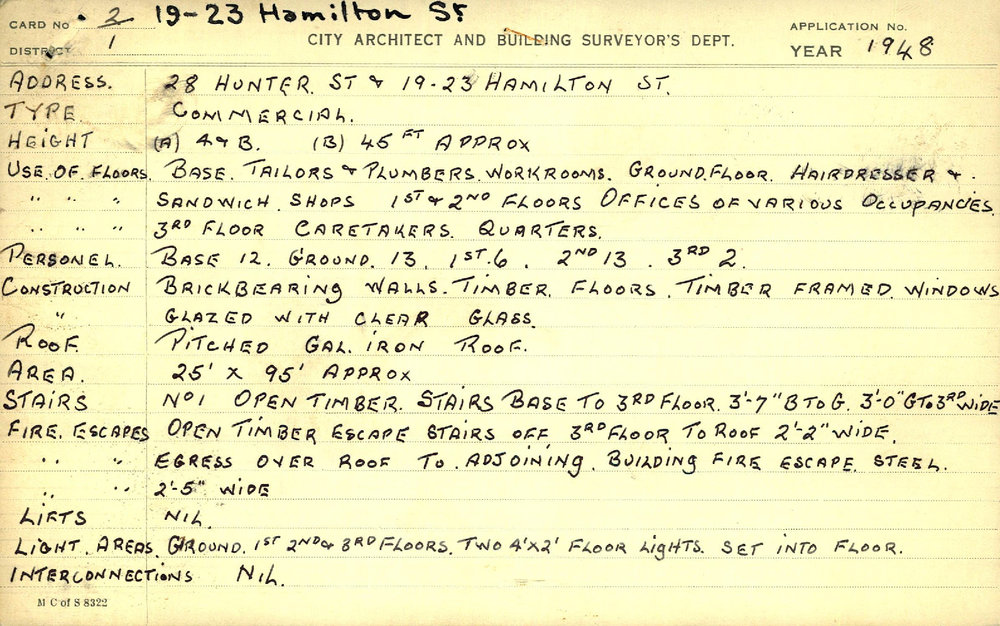 CARD No 2 19-23 Hamilton St
DISTRICT 1 CITY ARCHITECT AND BUILDING SURVEYOR'S DEPT. APPLICATION No.
YEAR 1948
ADDRESS. 28 HUNTER. ST & 19-23 HAMILTON ST.
TYPE COMMERCIAL.
HEIGHT (A) 4 & B. (B) 45 FT APPROX
USE. OF. FLOORS. BASE. TAILORS & PLUMBERS. WORKROOMS. GROUND.FLOOR. HAIRDRESSER &.
" " " SANDWICH. SHOPS 1ST & 2ND FLOORS OFFICES OF VARIOUS OCCUPANCIES.
" " " 3RD FLOOR CARETAKERS. QUARTERS.
PERSONEL. BASE 12. GROUND. 13. 1ST.6. 2ND 13. 3RD 2.
CONSTRUCTION BRICKBEARING WALLS. TIMBER. FLOORS. TIMBER FRAMED. WINDOWS
" GLAZED WITH CLEAR GLASS.
ROOF. PITCHED GAL. IRON ROOF.
AREA. 25' X 95' APPROX
STAIRS No 1 OPEN TIMBER. STAIRS BASE TO 3RD FLOOR. 3'-7" B TO G. 3'-0" G TO 3RD WIDE
FIRE. ESCAPES OPEN TIMBER ESCAPE STAIRS OFF 3RD FLOOR TO ROOF 2'-2" WIDE.
" " EGRESS OVER ROOF TO. ADJOINING. BUILDING FIRE ESCAPE. STEEL.
" " 2'-5" WIDE
LIFTS NIL.
LIGHT. AREAS. GROUND. 1ST 2ND & 3RD FLOORS. TWO 4'X2' FLOOR LIGHTS. SET INTO FLOOR.
INTERCONNECTIONS NIL.
M C of S 8322